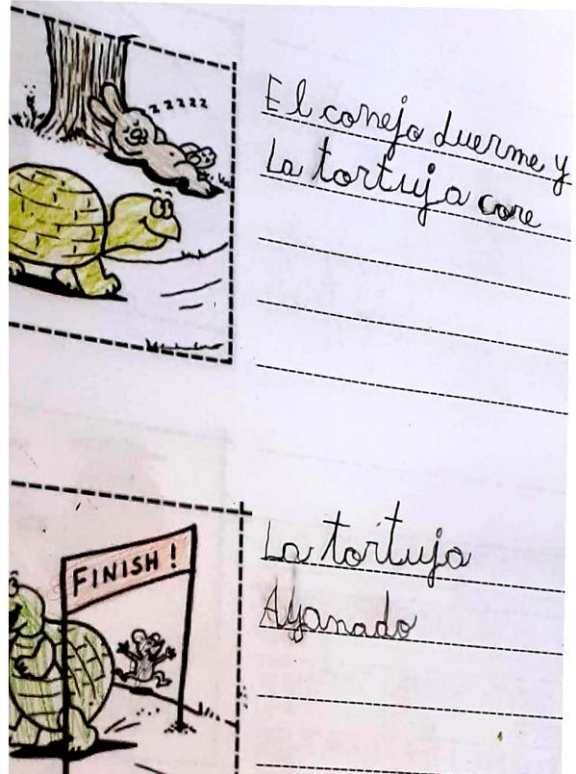 zzzzz
El conejo duerme y
La tortuja core
FINISH!
La tortuja
Ayanado